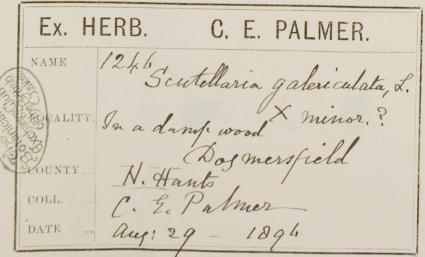 Ex. HERB. C. E. PALMER.
NAME 1246
Scutellaria galericulata, L.
× minor. ?
LOCALITY. In a damp wood
Dogmersfield
COUNTY. .. N. Hants
COLL. ... C. E. Palmer
DATE ... Aug: 29 - 1894